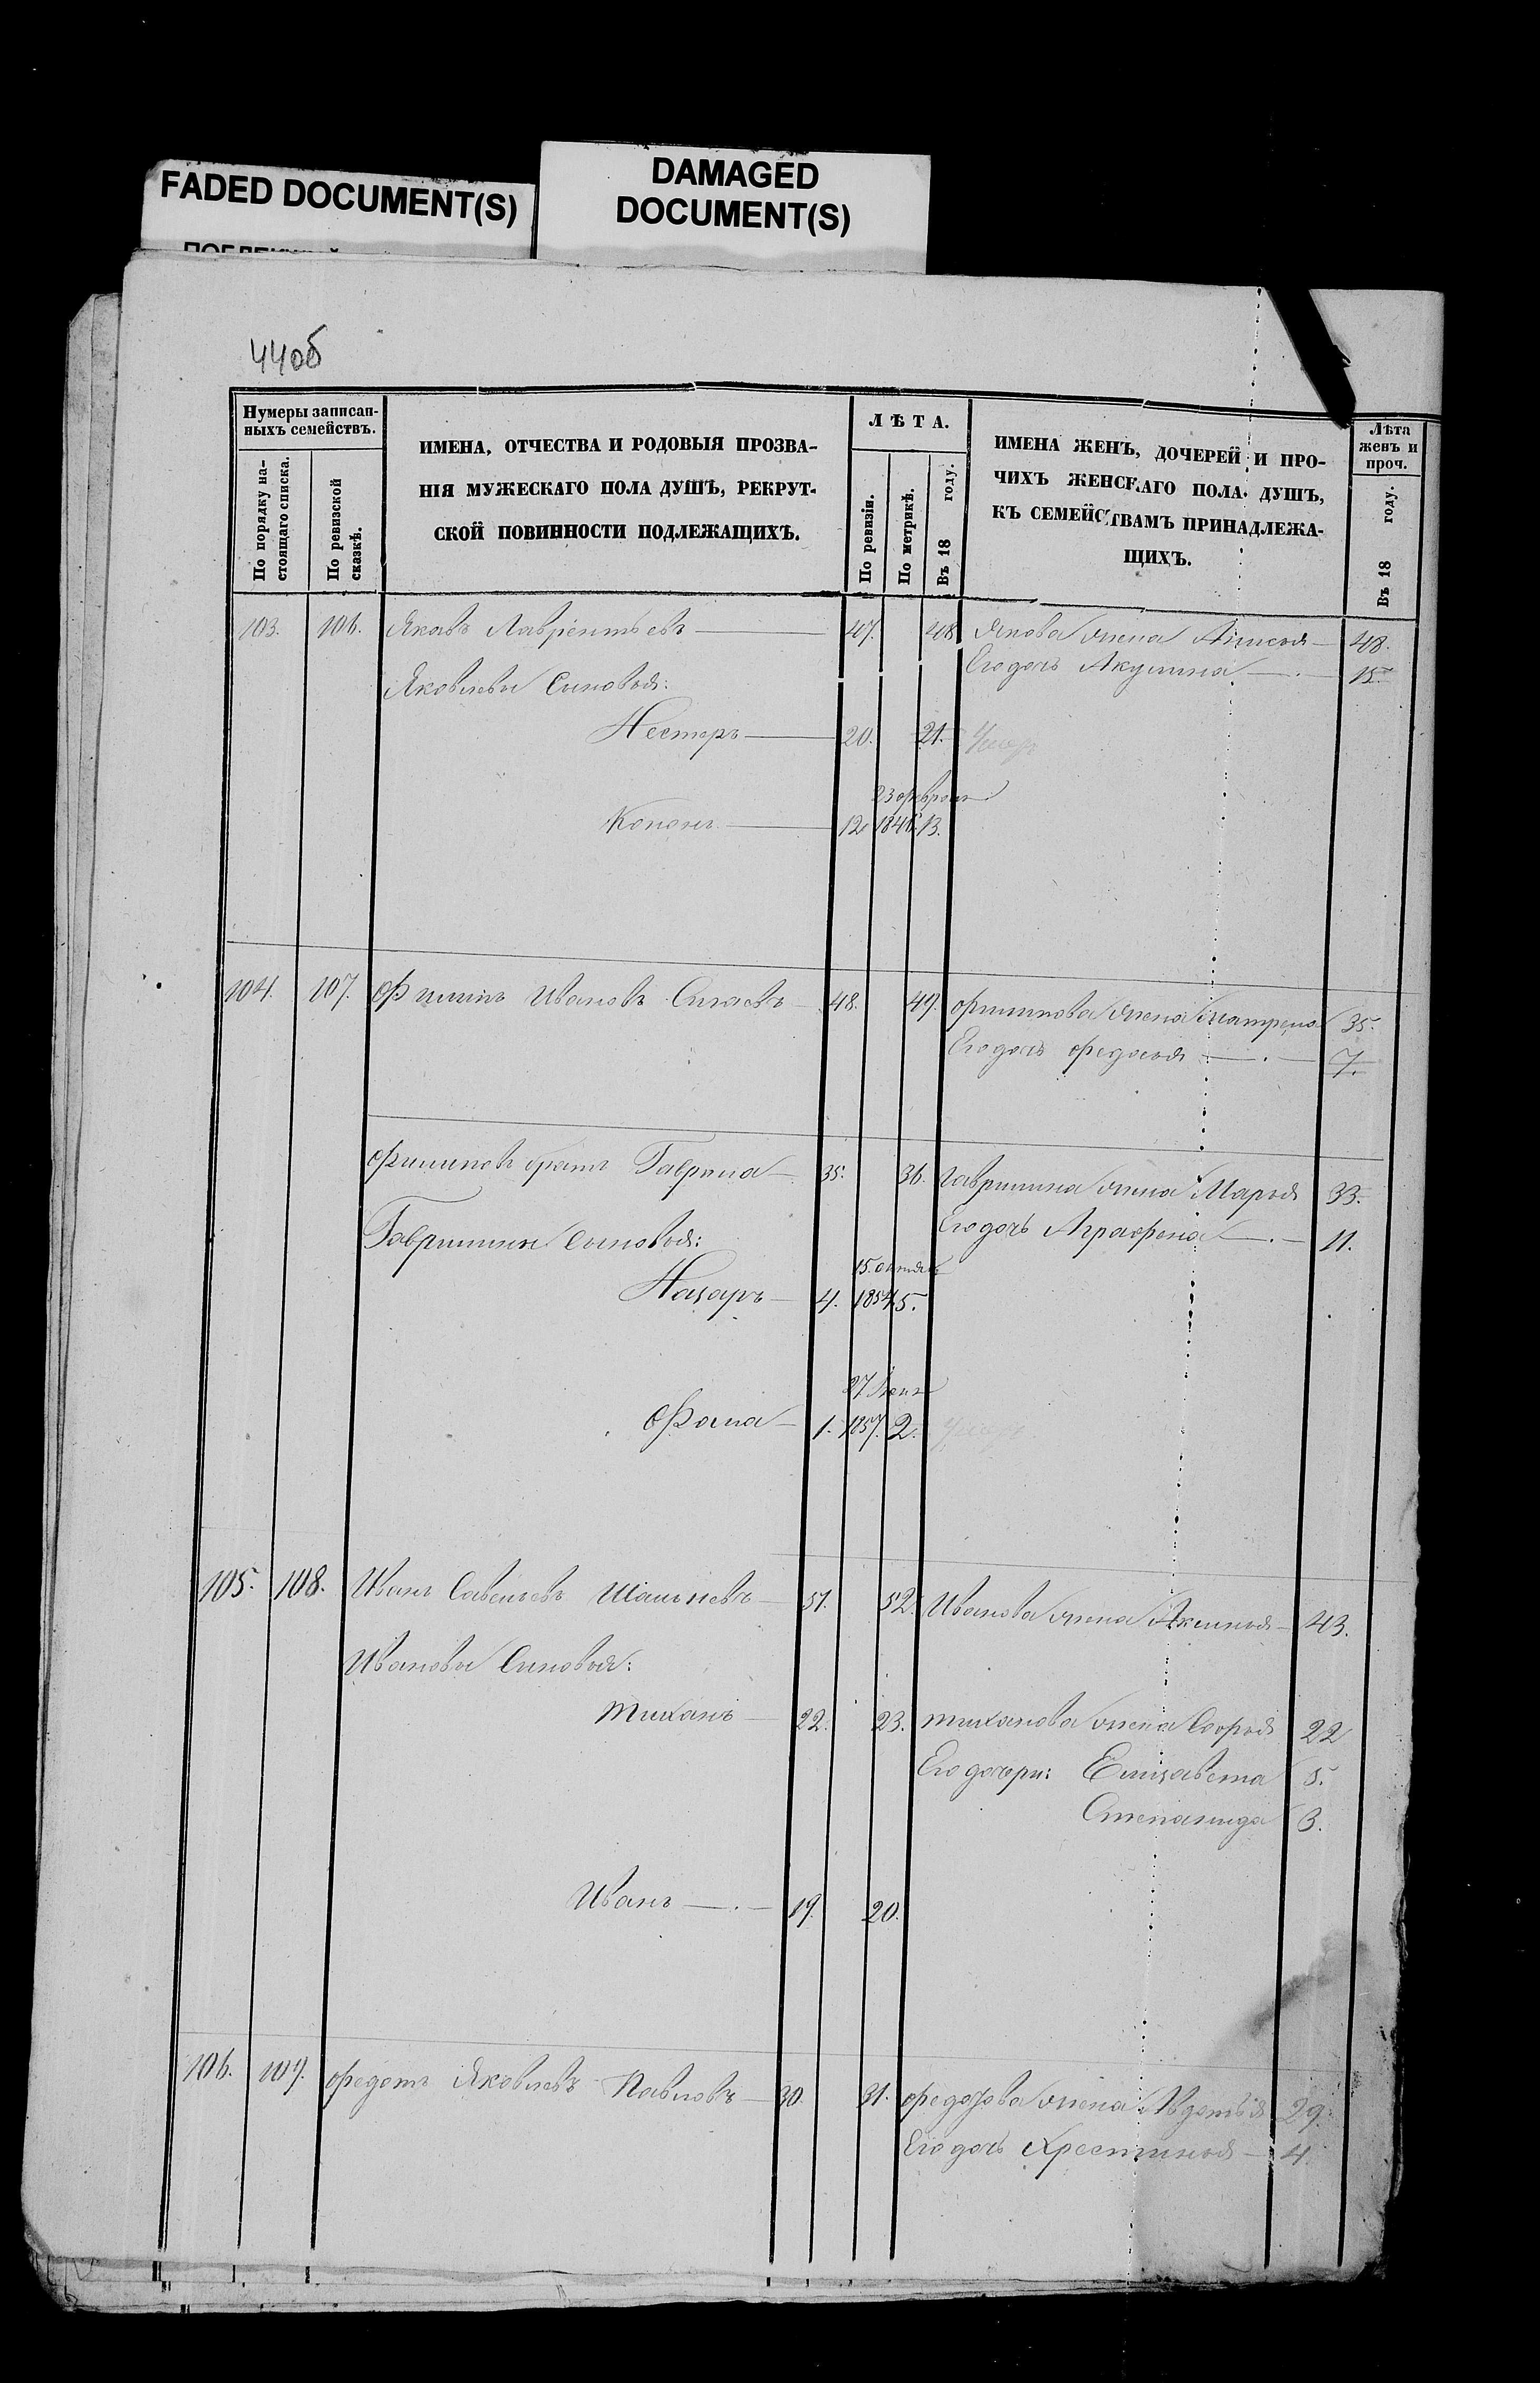 FADED DOCUMENT(S)
DAMAGED
DOCUMENT(S)
44об
Нумеры записан-
ныхъ семействъ.
По порядку на-
стоящаго списка.
По ревизской
сказкѣ.
ИМЕНА, ОТЧЕСТВА И РОДОВЫЯ ПРОЗВА-
НІЯ МУЖЕСКАГО ПОЛА ДУШЪ, РЕКРУТ-
СКОЙ ПОВИННОСТИ ПОДЛЕЖАЩИХЪ.
ЛѢТА.
По ревизіи.
По метрикѣ.
Въ 18 году.
ИМЕНА ЖЕНЪ, ДОЧЕРЕЙ И ПРО-
ЧИХЪ ЖЕНСКАГО ПОЛА ДУШЪ,
КЪ СЕМЕЙСТВАМЪ ПРИНАДЛЕЖА-
ЩИХЪ.
Лѣта
женъ и
проч.
Въ 18 году.
103. 106. Яковъ Лаврентьевъ 47. 48 Якова жена Анисья 48.
Его дочь Акулина 15.
Яковлевы Сыновья:
Нестеръ 20. 21. Умеръ
23 февраля
Кононъ 12 1846 13.
104. 107. Филипъ Ивановъ 48. 49. Филипова жена Матрена 35.
Его дочь Федосья 7.
Филиповъ братъ Гаврила 35. 36. Гаврилина жена Марья 33.
Его дочь Аграфена 11.
Гаврилины Сыновья:
15. октября
Назаръ 4. 1854 5.
27
Фома 1. 1857. 2. Умеръ
105. 108. Иванъ Савельевъ 51. 52. Иванова жена Аксинья 43.
Ивановы Сыновья:
Тиханъ 22. 23. Тиханова жена Софья 22
Его дочери: Елизавета 5.
Степанида 3.
Иванъ 19. 20.
106. 109. Федотъ Яковлевъ Павловъ 30. 31. Федотова жена Авдотья 29.
Его дочь Хрестинья 4.